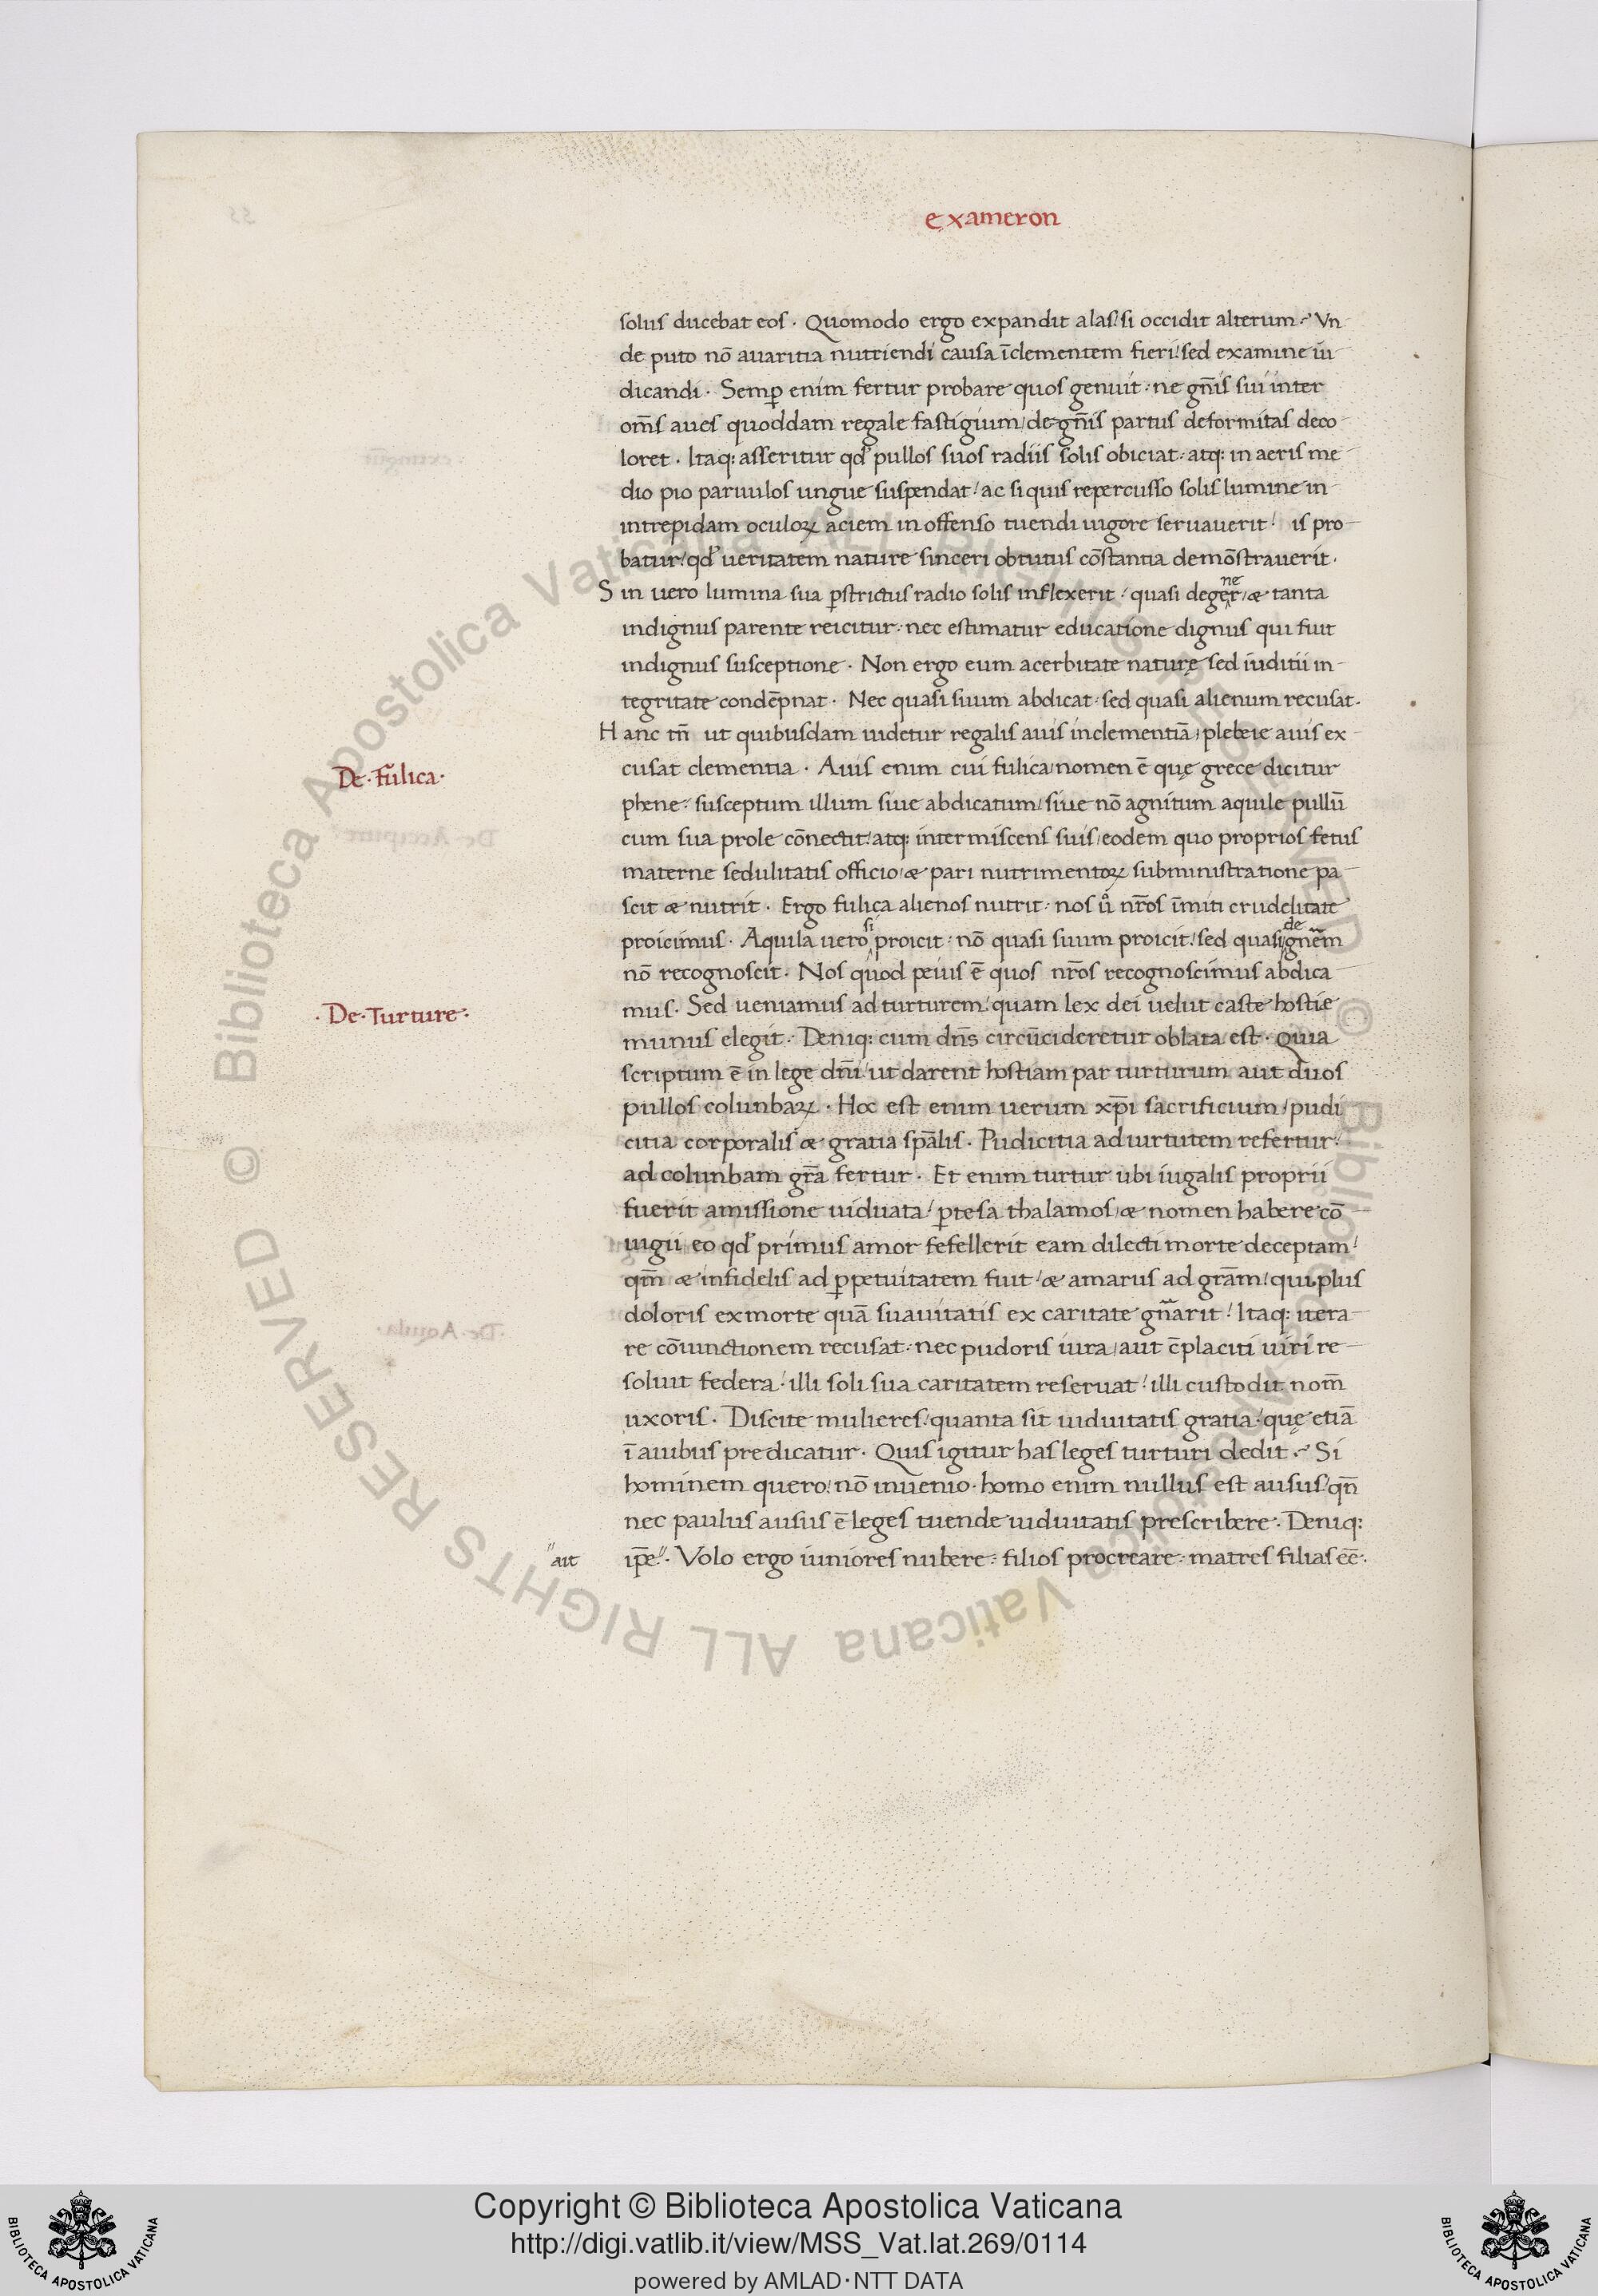 exameron
solus ducebat eos · Quomodo ergo expandit alas / si occidit alterum ? Vn
de puto nō auaritia nutriendi causa īclementem fieri / sed examine iu
dicandi · Semꝑ enim fertur probare quos genuit · ne gn̄is sui inter
om̄s aues quoddam regale fastigium / de gn̄is partus deformitas deco
loret · Itaq: asseritur qd̓ pullos suos radiis solis obiciat · atq: in aeris me
dio pio paruulos ungue suspendat / ac si quis repercusso solis lumine in
intrepidam oculoꝝ aciem in offenso tuendi uigore seruauerit / is pro
batur / qd̓ ueritatem nature sinceri obtutus cōstantia demōstrauerit ·
Sin uero lumina sua ꝑstrictus radio solis inflexerit / quasi degener / & tanta
indignus parente reicitur · nec estimatur educatione dignus qui fuit
indignus susceptione · Non ergo eum acerbitate naturę sed iuditii in
tegritate condēpnat · Nec quasi suum abdicat · sed quasi alienum recusat ·
Hanc tn̄ ut quibusdam uidetur regalis auis inclementiā / plebeie auis ex
De · Fulica ·
cusat clementia · Auis enim cui fulica nomen ē quę grece dicitur
phene · susceptum illum siue abdicatum / siue nō agnitum aquile pullū
cum sua prole cōnectit / atq: intermiscens suis / eodem quo proprios fetus
materne sedulitatis officio / & pari nutrimentoꝝ subministratione pa
scit & nutrit · Ergo fulica alienos nutrit · nos ů nr̄os īmiti crudelitate
proicimus · Aquila uero si proicit · nō quasi suum proicit / sed quasi degnēm
nō recognoscit · Nos quod peius ē quos nr̄os recognoscimus abdica
· De · Turture ·
mus · Sed ueniamus ad turturem / quam lex dei uelut caste hostie
munus elegit · Deniq: cum dn̄s circūcideretur oblata est · Quia
scriptum ē in lege dn̄i / ut darent hostiam par turturum aut duos
pullos colunbaꝝ · Hoc est enim uerum xp̄i sacrificium / pudi
citia corporalis & gratia sp̄alis · Pudicitia ad uirtutem refertur /
ad colunbam gr̄a fertur · Et enim turtur ubi iugalis proprii
fuerit amissione uiduata / ꝑtesa thalamos / & nomen habere cō
iugii eo qd̓ primus amor fefellerit eam dilecti morte deceptam /
qm̄ & infidelis ad ꝑpetuitatem fuit / & amarus ad grām / qui plus
doloris ex morte quā suauitatis ex caritate gn̄arit / Itaq: itera
re cōiunctionem recusat · nec pudoris iura / aut c̄placiti uiri re
soluit federa · illi soli sua caritatem reseruat / illi custodit nom̄
uxoris · Discite mulieres / quanta sit uiduitatis gratia · quę etiā
ī auibus predicatur · Quis igitur has leges turturi dedit ? Si
hominem quero / nō inuenio · homo enim nullus est ausus / qn̄
nec paulus ausus ē leges tuende uiduitatis prescribere · Deniq:
"ait ip̄e" · Volo ergo iuniores nubere · filios procreare · matres filias eē ·
Copyright © Biblioteca Apostolica Vaticana
http://digi.vatlib.it/view/MSS_Vat.lat.269/0114
powered by AMLAD·NTT DATA
BIBLIOTECA APOSTOLICA VATICANA
BIBLIOTECA APOSTOLICA VATICANA
© Biblioteca Apostolica Vaticana ALL RIGHTS RESERVED © Biblioteca Apostolica Vaticana ALL RIGHTS RESERVED